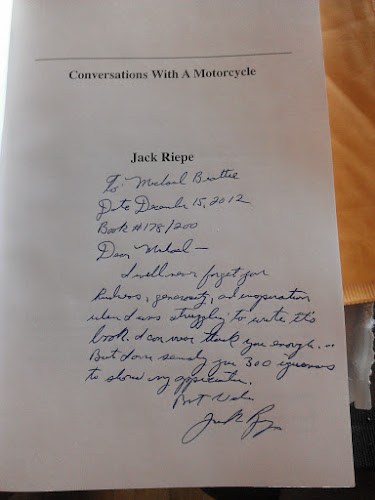 Conversations With A Motorcycle
Jack Riepe
To: Michael Beattie
Date December 15, 2012
Book #178/200
Dear Michael —
I will never forget your
kindness, generosity, and inspiration
when I was struggling to write this
book. I can never thank you enough...
But I am sending you 300 iguanas
to show my appreciation.
Best Wishes
Jack Riepe